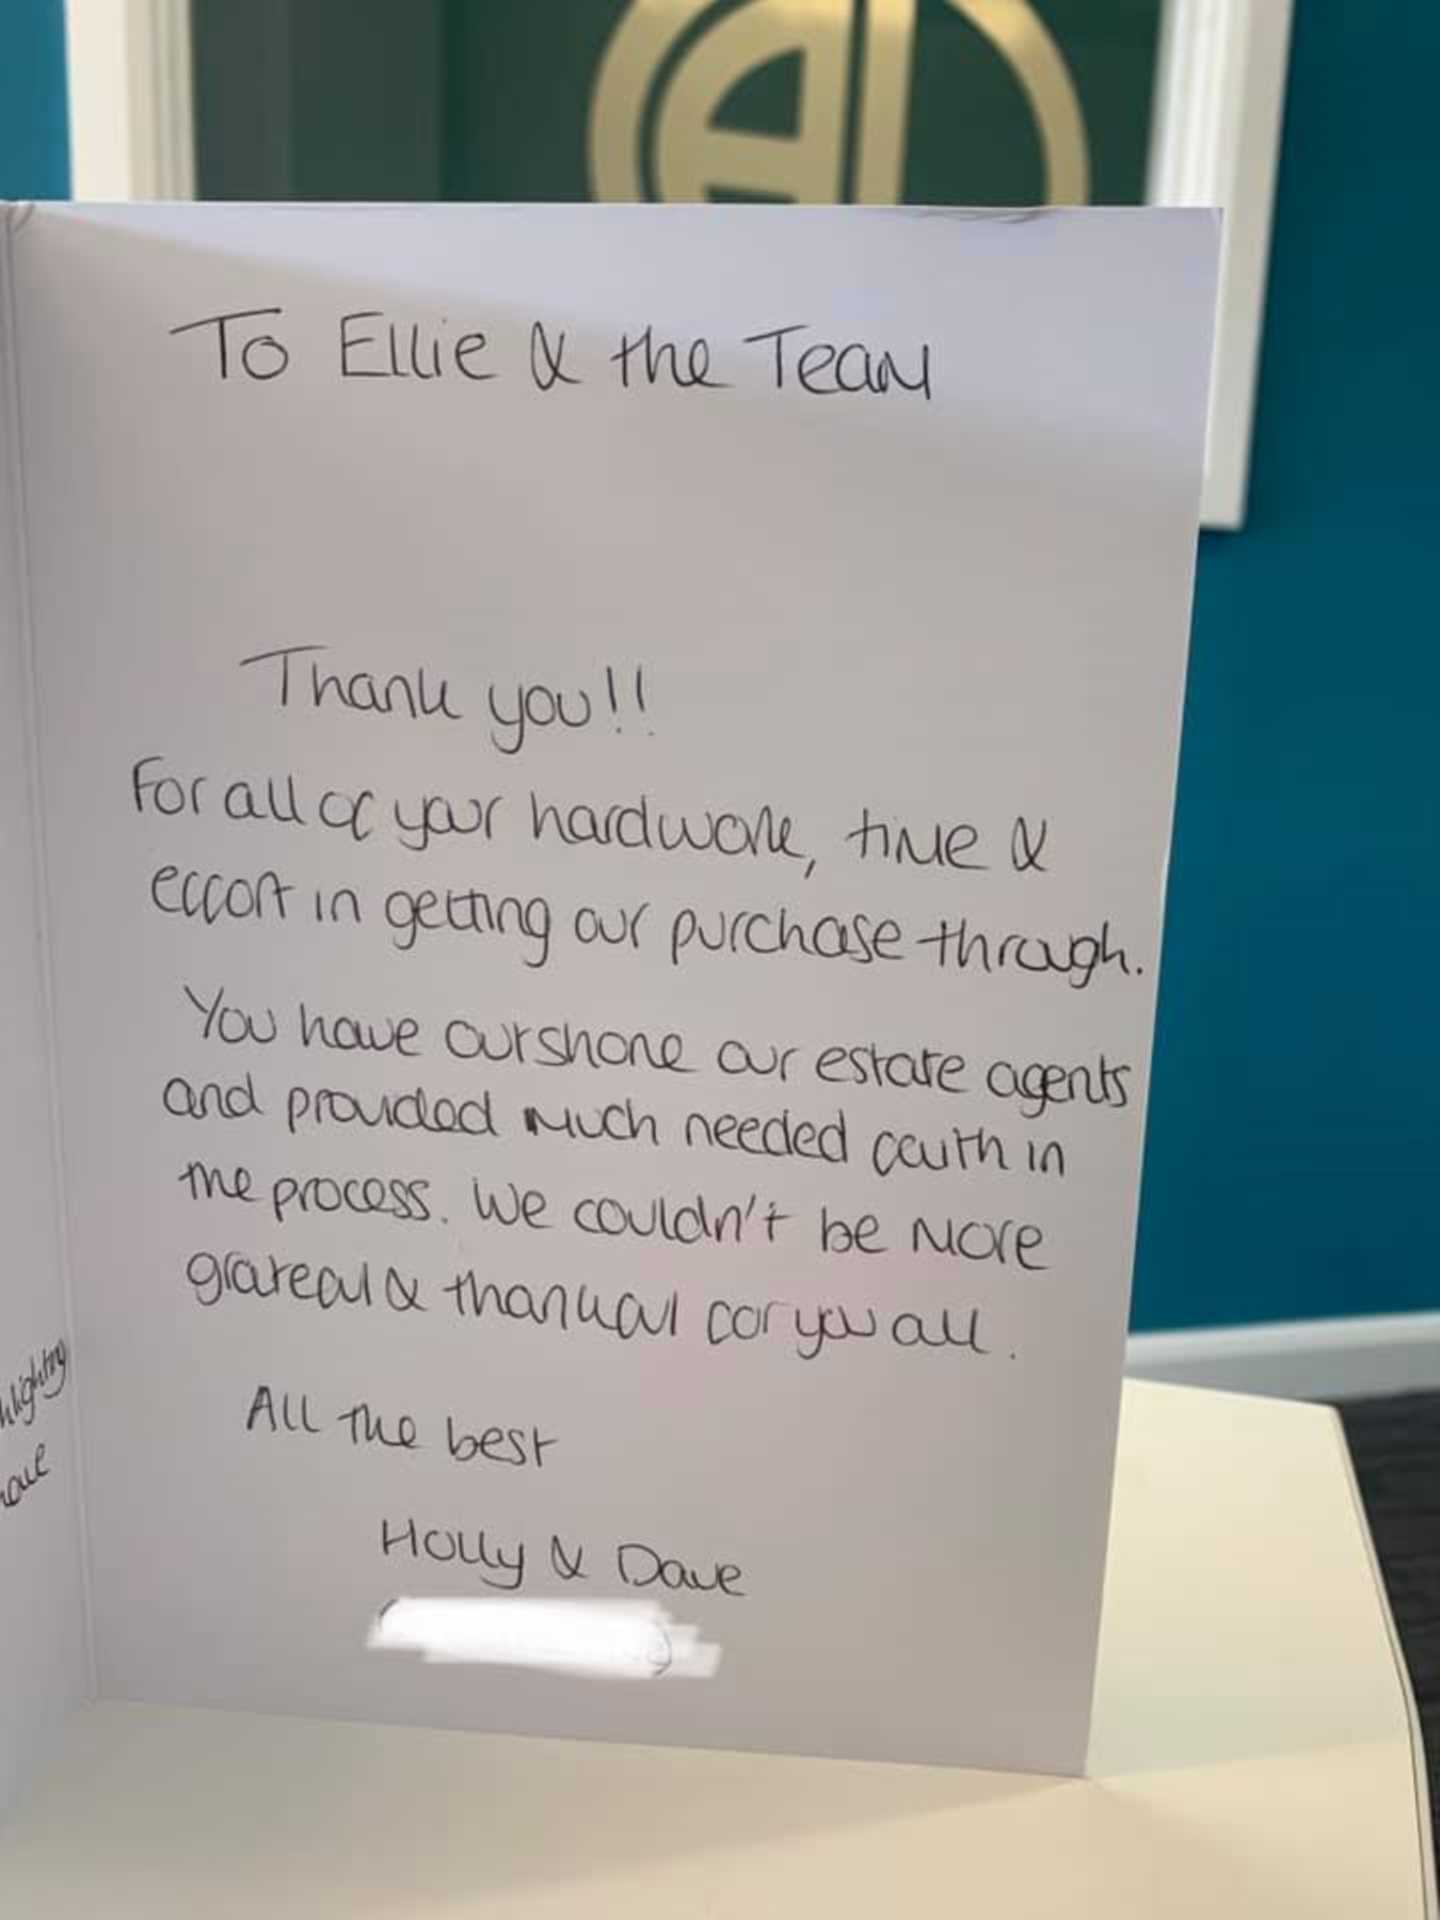 To Ellie & the Team
Thank you!!
For all of your hardwork, time &
effort in getting our purchase through.
You have outshone our estate agents
and provided much needed faith in
the process. We couldn't be more
grateful & thankful for you all.
All the best
Holly & Dave